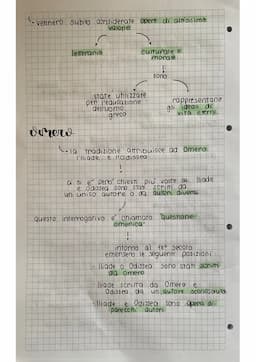 vennero subito considerate opere di altissimo
valore
letterario
culturale e
morale
sono
state utilizzate
per l'educazione
dell'uomo
greco
rappresentano
gli ideali di
vita eterni
Omero
la tradizione attribuisce ad Omero
Iliade e Odissea
ci si e' pero' chiesti piu' volte se Iliade
e Odissea sono stati scritti da
un unico autore o da autori diversi
questo interrogativo e' chiamato questione
omerica
intorno al secolo
emersero le seguenti posizioni
Iliade e Odissea sono stati scritti
da Omero
Iliade scritta da Omero e
Odissea da un autore sconosciuto
Iliade e Odissea sono opera di
parecchi autori